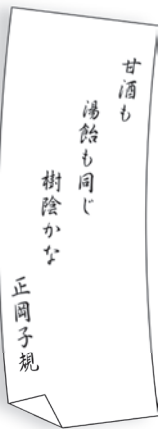 甘酒も
湯飴も同じ
樹陰かな
正岡子規